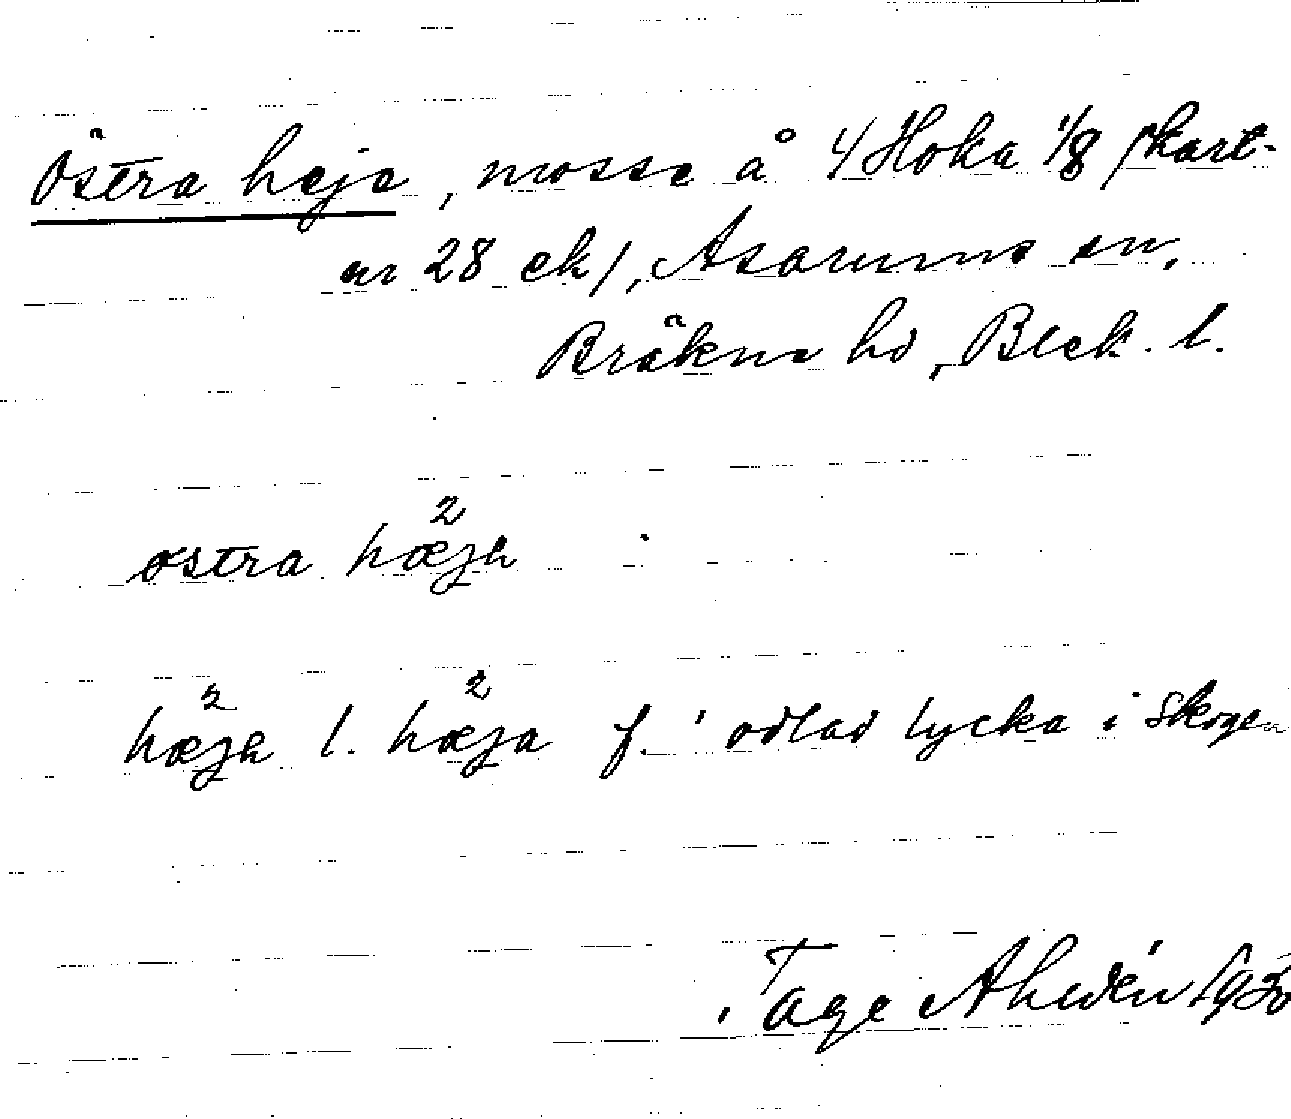 Östra heje, mosse å 4 Hoka 1/8 /kart-
nr 28 ek/, Asarums sn,
Bräkne hd, Blek. l.
östra hæjh
hæjh l. hæja f. ' odlad lycka i skogen
Tage Ahldén 1930